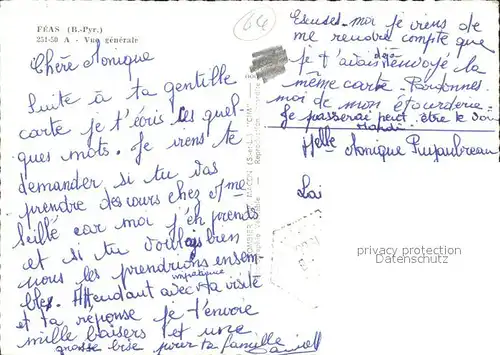 FÉAS (B.-Pyr.)
251-50 A - Vue générale
64
Chère Monique
Suite à ta gentille
carte je t'écris ces quel-
ques mots. Je viens te
demander si tu vas
prendre des cours chez Mme
car moi j'en prends
et si tu voulais bien
nous les prendrions ensem-
bles. Attendant avec impatience ta visite
et ta réponse je t'envoie
mille baisers et une
grosse bise pour ta famille
Excuse-moi je viens de
me rendre compte que
je t'avais déjà envoyé la
même carte. Pardonnes
moi de mon étourderie.
Je passerai peut être le voir
Mardi
Melle Monique
privacy protection
Datenschutz